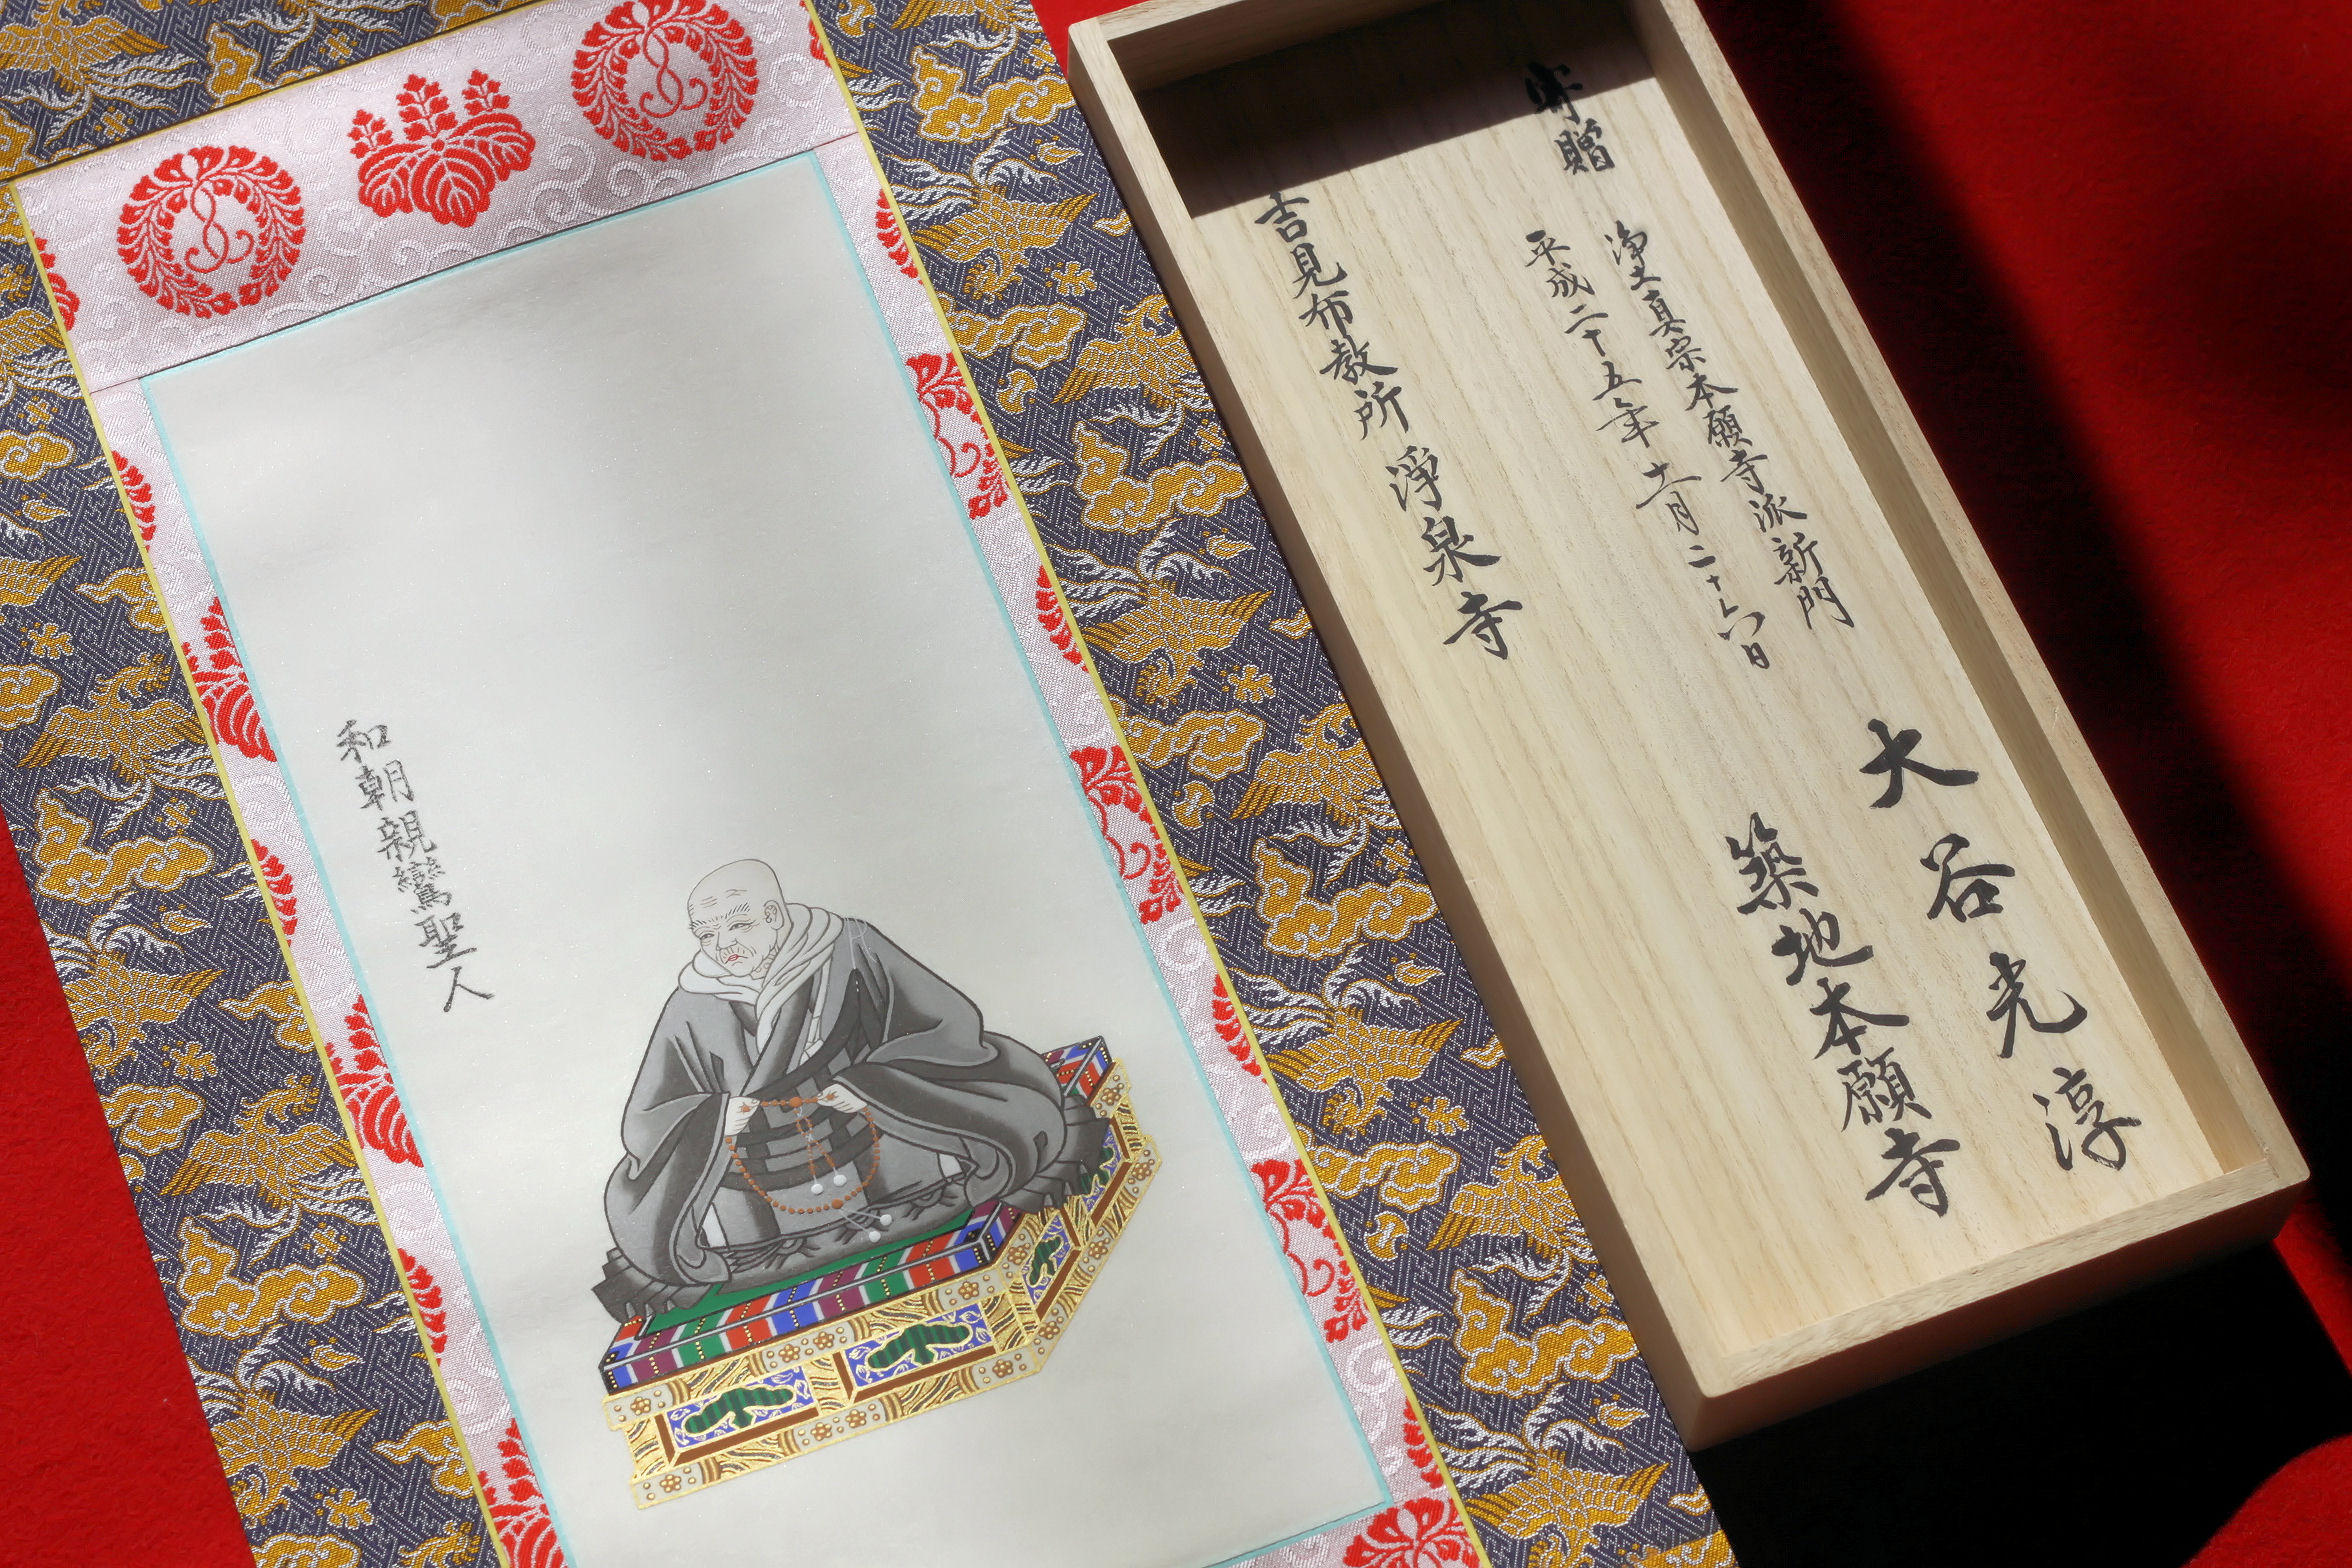 和朝親鸞聖人
寄贈
浄土真宗本願寺派新門
大谷光淳
平成二十五年十二月二十六日
築地本願寺
吉見布教所 淨泉寺